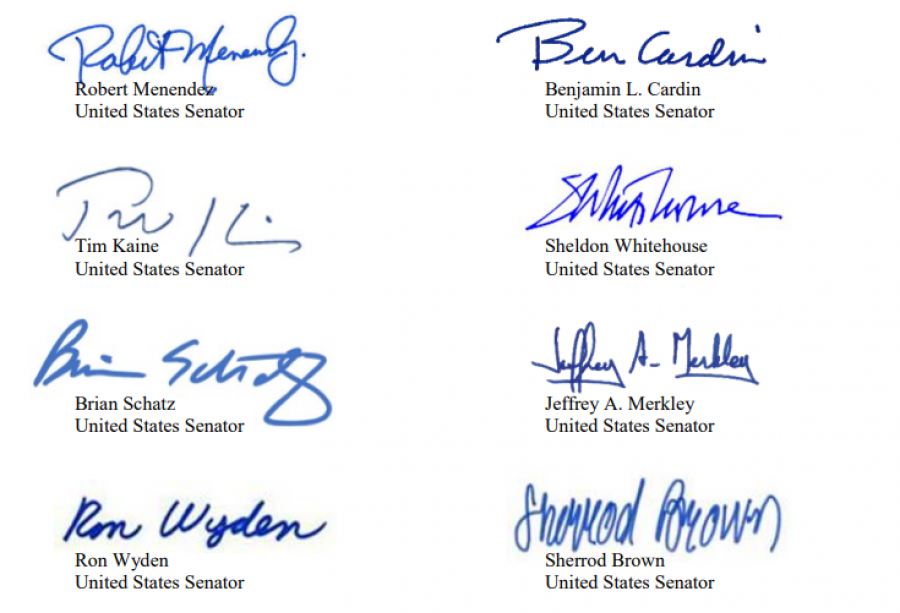 Robert Menendez
Robert Menendez
United States Senator
Ben Cardin
Benjamin L. Cardin
United States Senator
Tim Kaine
Tim Kaine
United States Senator
SWhitehouse
Sheldon Whitehouse
United States Senator
Brian Schatz
Brian Schatz
United States Senator
Jeffrey A. Merkley
Jeffrey A. Merkley
United States Senator
Ron Wyden
Ron Wyden
United States Senator
Sherrod Brown
Sherrod Brown
United States Senator